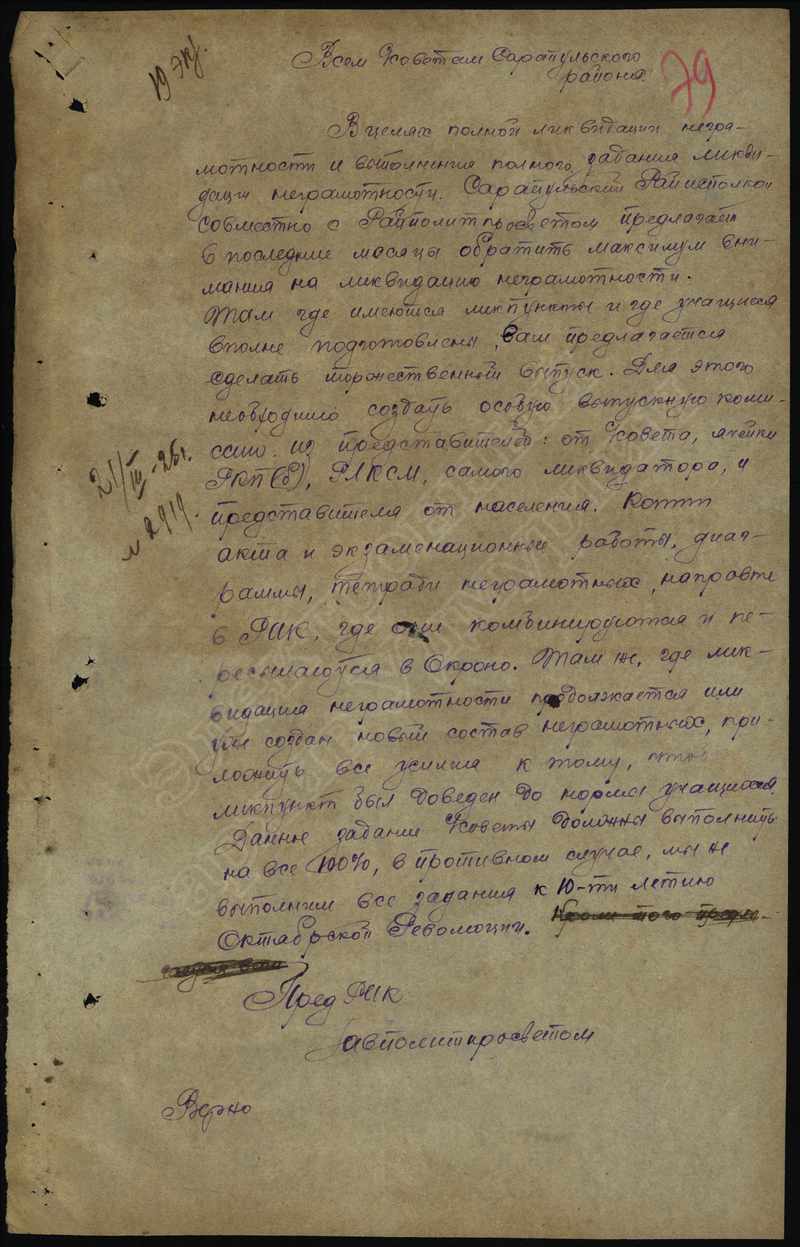 19 экз.
79
Всем Советам Сарапульского
района
В целях полной ликвидации негра-
мотности и выполнения полного задания ликви-
дации неграмотности. Сарапульский Райисполком
совместно с Райполитпросветом предлагает
в последние месяцы обратить максимум вни-
мания на ликвидацию неграмотности.
Там где имеются ликпункты и где учащиеся
вполне подготовлены, Вам предлагается
сделать торжественный выпуск. Для этого
необходимо создать особую выпускную коми-
ссию из представителей: от Совета, ячейки
РКП(б), РЛКСМ, самого ликвидатора, и
21/III-26г.
№ 2919.
представителя от населения. Копии
акта и экзаменационные работы, диаг-
раммы, тетради неграмотных, направте
в РИК, где они комбинируются и пе-
ресылаются в Окроно. Там же, где лик-
видация неграмотности продолжается или
создан новый состав неграмотных, при-
ложить все усилия к тому,
ликпункт был доведен до нормы учащихся.
Данные задания Советы должны выполнить
на все 100%, в противном случае, мы не
выполним все задания к 10-ти летию
Октябрской Революции. Кроме того предла-
Пред РИК
Завполитпросветом
Верно